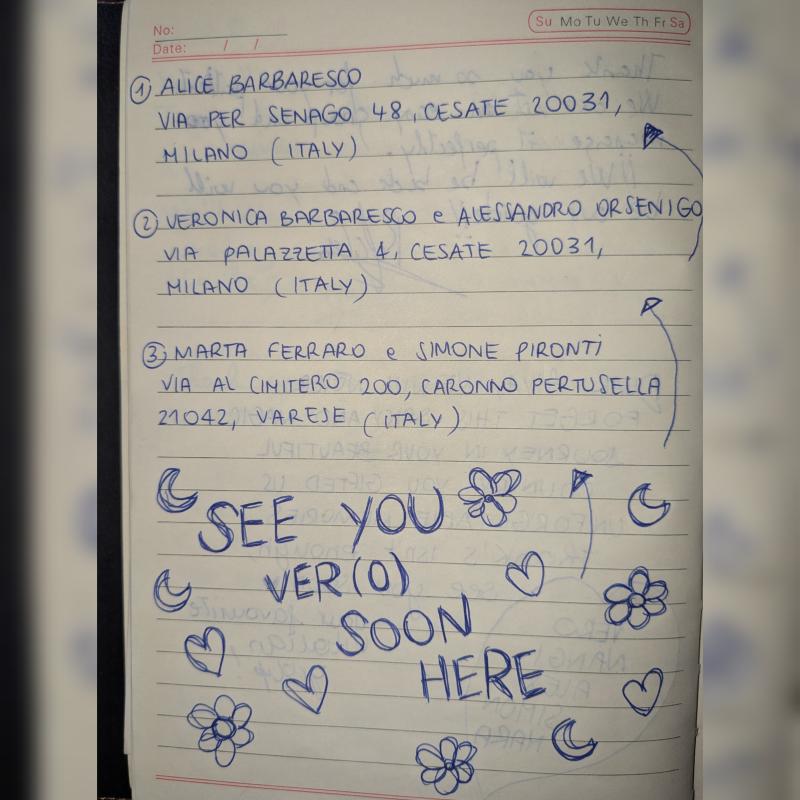 No:
Su Mo Tu We Th Fr Sa
Date: / /
① ALICE BARBARESCO
VIA PER SENAGO 48, CESATE 20031,
MILANO (ITALY)
② VERONICA BARBARESCO e ALESSANDRO ORSENIGO
VIA PALAZZETTA 4, CESATE 20031,
MILANO (ITALY)
③ MARTA FERRARO e SIMONE PIRONTI
VIA AL CIMITERO 200, CARONNO PERTUSELLA
21042, VARESE (ITALY)
SEE YOU
VER(O)
SOON
HERE